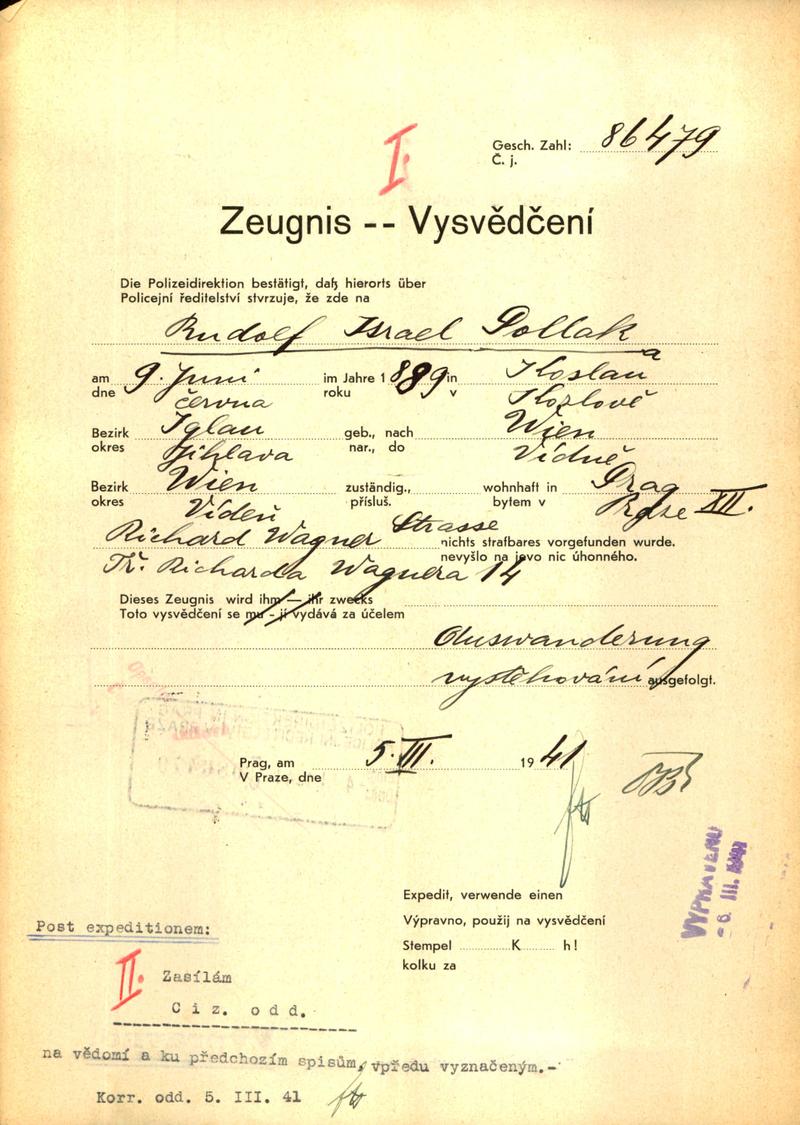 I.
Gesch. Zahl: 86479
Č. j.
Zeugnis -- Vysvědčení
Die Polizeidirektion bestätigt, daß hierorts über
Policejní ředitelství stvrzuje, že zde na
Rudolf Israel Pollak
a
am 9. Juni im Jahre 1889 in Koslau
dne června roku v Kozlově
Bezirk Iglau geb., nach Wien
okres Jihlava nar., do Vídně
Bezirk Wien zuständig., wohnhaft in Prag
okres Vídeň přísluš. bytem v Praze XII.
Richard Wagner Strasse nichts strafbares vorgefunden wurde.
Tř. Richarda Wagnera 14 nevyšlo na jevo nic úhonného.
Dieses Zeugnis wird ihm — ihr zwecks
Toto vysvědčení se mu - jí vydává za účelem
Auswanderung
vystěhování ausgefolgt.
Prag, am 5. III. 1941
V Praze, dne
VYPRAVENO
- 6. III. 1941
Expedit, verwende einen
Výpravno, použij na vysvědčení
Stempel K h!
kolku za
Post expeditionem:
II. Zasílám
Ciz. odd.
na vědomí a ku předchozím spisům, vpředu vyznačeným.-
Korr. odd. 5. III. 41